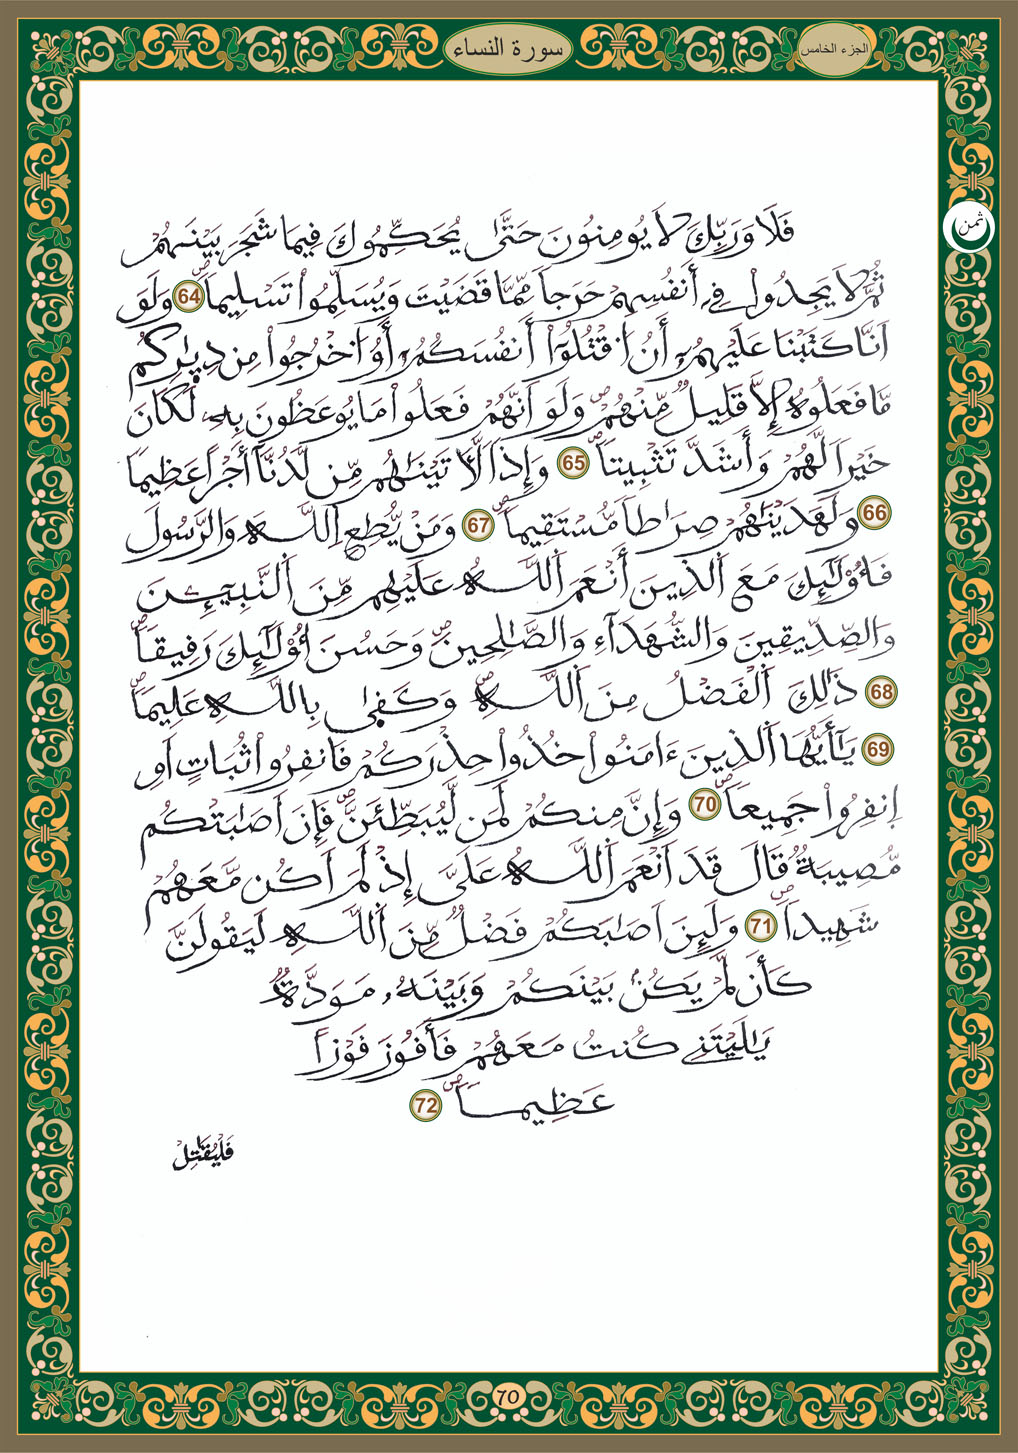 الجزء الخامس
سورة النساء
ثمن
فَلَا وَرَبِّكَ لَا يُومِنُونَ حَتَّىٰ يُحَكِّمُوكَ فِيمَا شَجَرَ بَيْنَهُمْ
ثُمَّ لَا يَجِدُواْ فِے أَنفُسِهِمْ حَرَجاً مِّمَّا قَضَيْتَ وَيُسَلِّمُواْ تَسْلِيماًۖ 64 وَلَوَ
اَنَّا كَتَبْنَا عَلَيْهِمُۥٓ أَنُ اُقْتُلُوٓاْ أَنفُسَكُمُۥٓ أَوُ اُخْرُجُواْ مِن دِيٰرِكُم
مَّا فَعَلُوهُ إِلَّا قَلِيلٌ مِّنْهُمْۖ وَلَوَ اَنَّهُمْ فَعَلُواْ مَا يُوعَظُونَ بِهِۦ لَكَانَ
خَيْراً لَّهُمْ وَأَشَدَّ تَثْبِيتاًۖ 65 وَإِذاً لَّأٓتَيْنَٰهُم مِّن لَّدُنَّآ أَجْراً عَظِيماً
66 وَلَهَدَيْنَٰهُمْ صِرَٰطاً مُّسْتَقِيماًۖ 67 وَمَنْ يُّطِعِ اِ۬للَّهَ وَالرَّسُولَ
فَأُوْلَٰٓئِكَ مَعَ اَ۬لذِينَ أَنْعَمَ اَ۬للَّهُ عَلَيْهِم مِّنَ اَ۬لنَّبِيٓـِٕينَ
وَالصِّدِّيقِينَ وَالشُّهَدَآءِ وَالصَّٰلِحِينَۖ وَحَسُنَ أُوْلَٰٓئِكَ رَفِيقاًۖ
68 ذَٰلِكَ اَ۬لْفَضْلُ مِنَ اَ۬للَّهِۖ وَكَف۪ىٰ بِاللَّهِ عَلِيماًۖ
69 يَٰٓأَيُّهَا اَ۬لذِينَ ءَامَنُواْ خُذُواْ حِذْرَكُمْ فَانفِرُواْ ثُبَاتٍ اَوِ
اِ۪نفِرُواْ جَمِيعاًۖ 70 وَإِنَّ مِنكُمْ لَمَن لَّيُبَطِّئَنَّۖ فَإِنَ اَصَٰبَتْكُم
مُّصِيبَةٌ قَالَ قَدَ اَنْعَمَ اَ۬للَّهُ عَلَيَّ إِذْ لَمَ اَكُن مَّعَهُمْ
شَهِيداًۖ 71 وَلَئِنَ اَصَٰبَكُمْ فَضْلٌ مِّنَ اَ۬للَّهِ لَيَقُولَنَّ
كَأَن لَّمْ يَكُنۢ بَيْنَكُمْ وَبَيْنَهُۥ مَوَدَّةٌ
يَٰلَيْتَنِے كُنتُ مَعَهُمْ فَأَفُوزَ فَوْزاً
عَظِيماًۖ 72
فَلْيُقَٰتِلْ
70